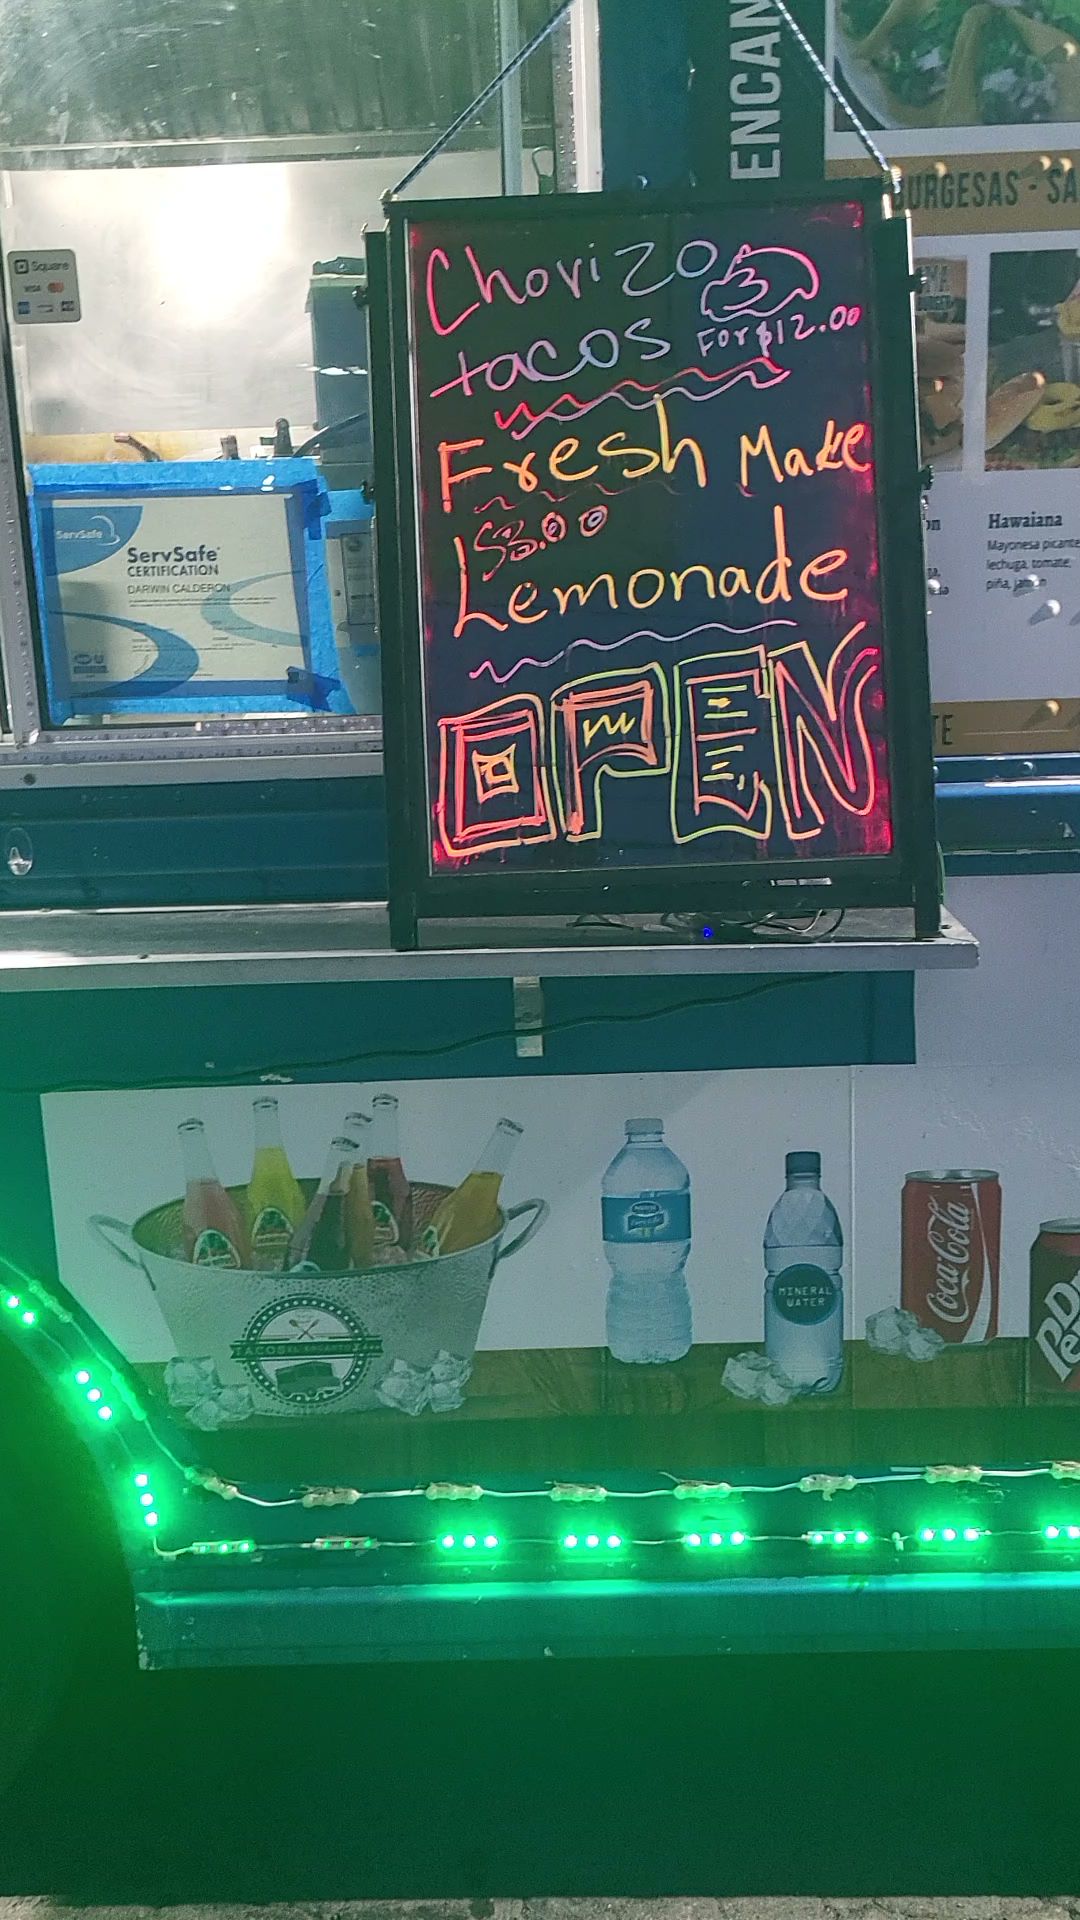 ENCAN
BURGESAS - SA
Square
VISA
Chorizo
tacos 3 For $12.00
Fresh Make
$3.00
Lemonade
OPEN
ServSafe
ServSafe
CERTIFICATION
DARWIN CALDERON
Hawaiana
Mayonesa picante
lechuga, tomate,
piña, jamon
TE
MINERAL
WATER
Coca-Cola
Dr
Pe
TACOS EL ENCANTO